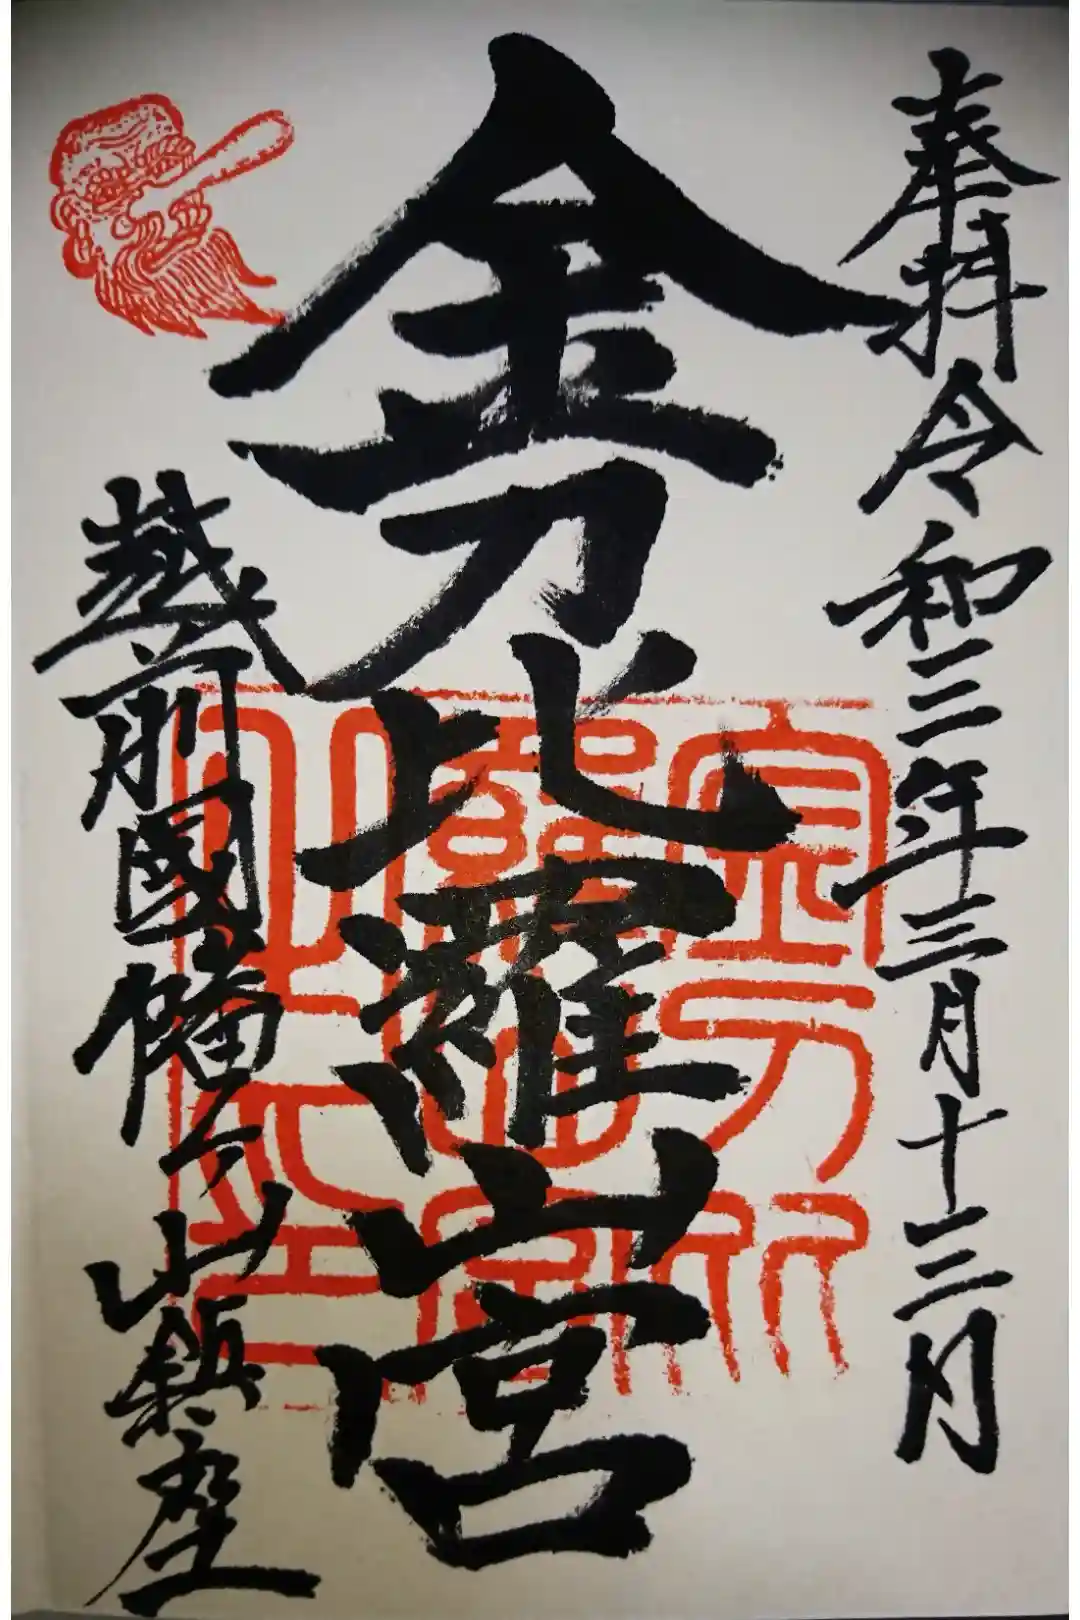 奉拝 令和三年三月十三日
金刀比羅宮
越前國幡ヶ山鎮座